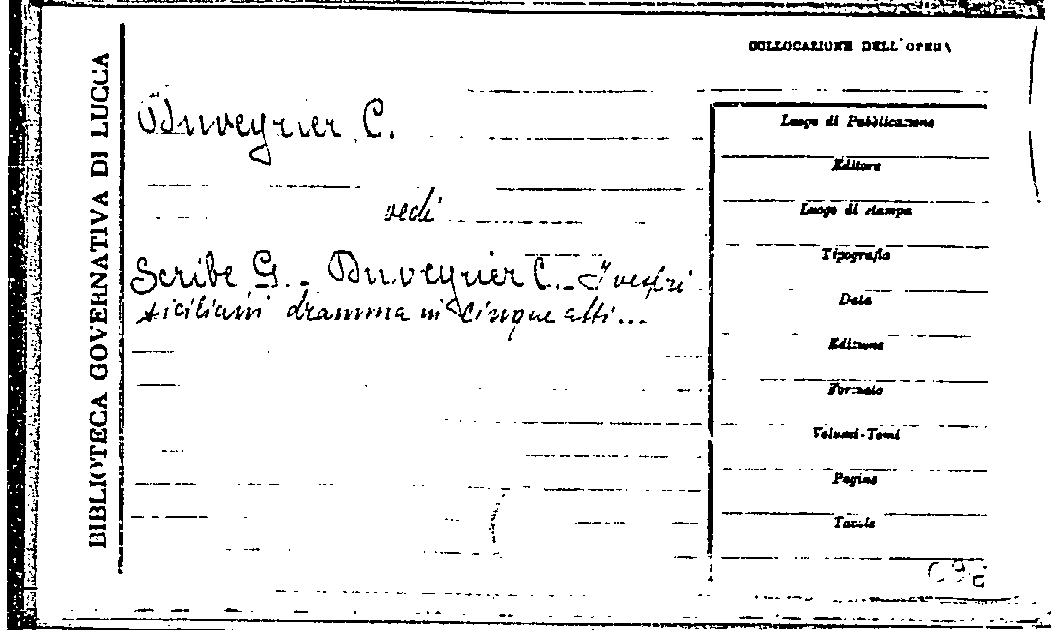 BIBLIOTECA GOVERNATIVA DI LUCCA
COLLOCAZIONE DELL'OPERA
Duveyrier C.
vedi
Scribe G. - Duveyrier C. - I vespri
siciliani dramma in cinque atti...
Luogo di Pubblicazione
Editore
Luogo di stampa
Tipografia
Data
Edizione
Formato
Volumi-Tomi
Pagine
Tavole